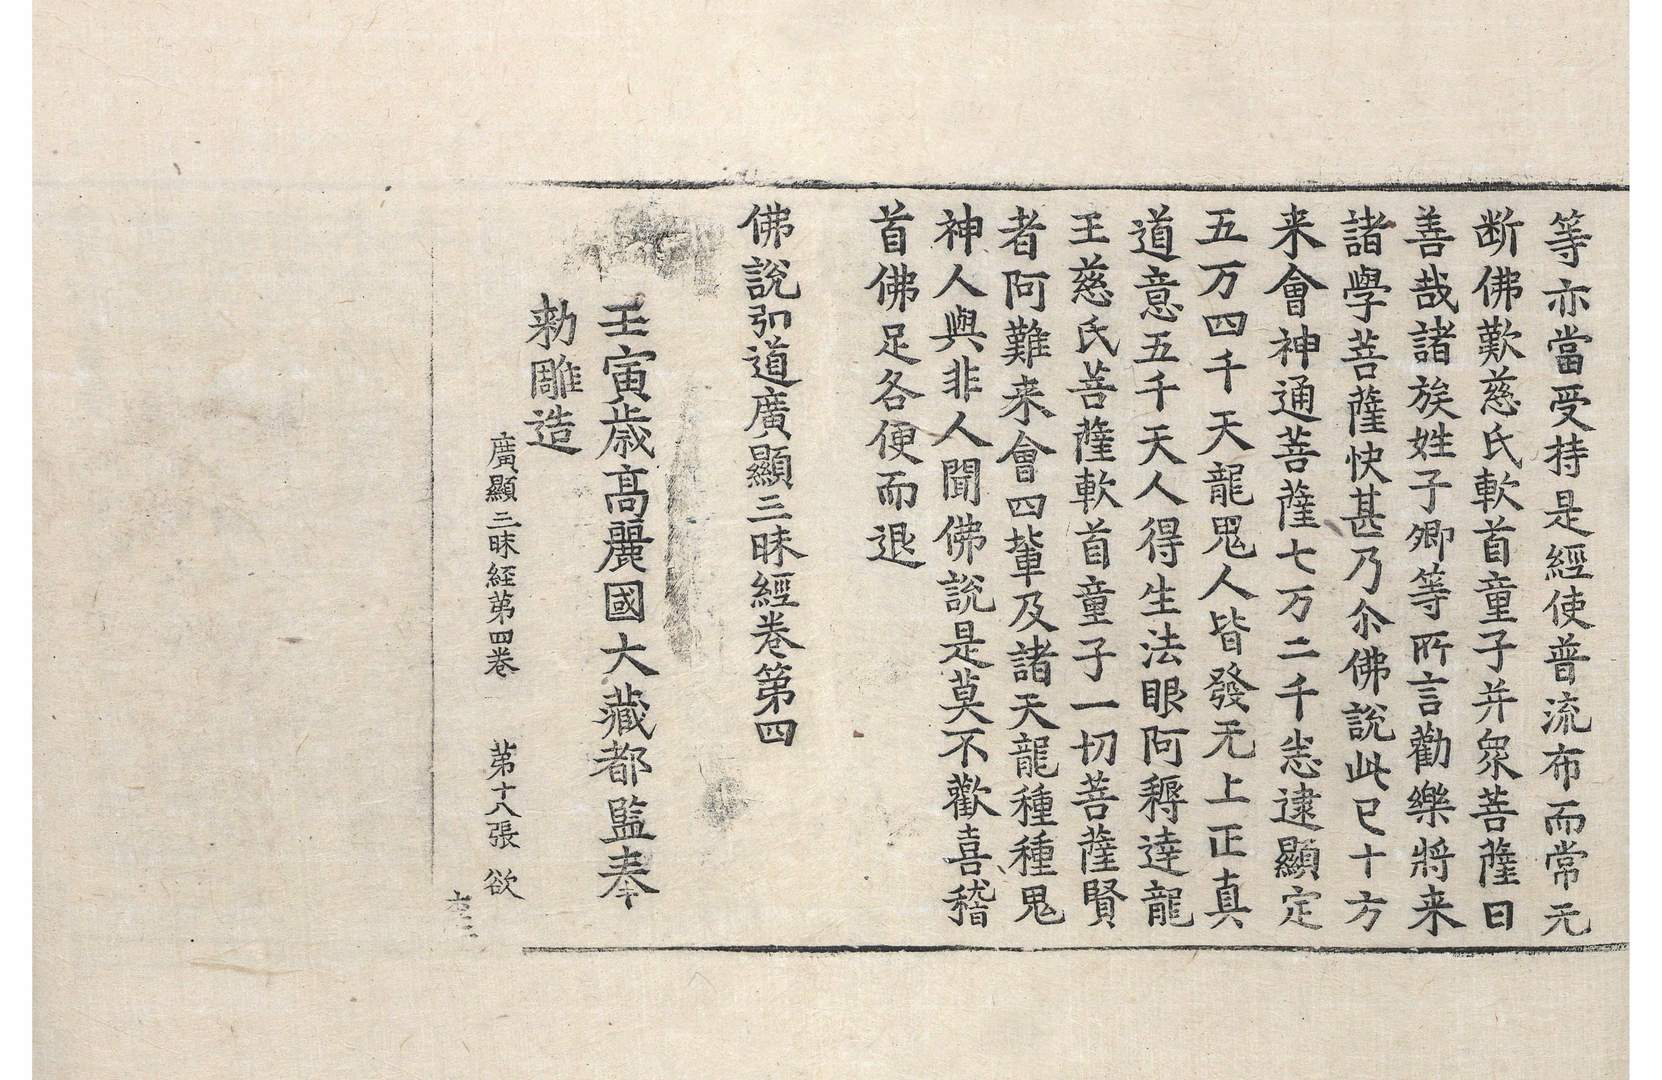 等亦當受持是經使普流布而常无
断佛歎慈氏軟首童子并衆菩薩曰
善哉諸族姓子卿等所言勸樂將来
諸學菩薩快甚乃尒佛說此已十方
来會神通菩薩七万二千恙逮顯定
五万四千天龍鬼人皆發无上正真
道意五千天人得生法眼阿耨達龍
王慈氏菩薩軟首童子一切菩薩賢
者阿難来會四輩及諸天龍種種鬼
神人與非人聞佛說是莫不歡喜稽
首佛足各便而退
佛說弘道廣顯三昧經卷第四
壬寅歲高麗國大藏都監奉
勑雕造
廣顯三昧経第四卷 第十八張 欲